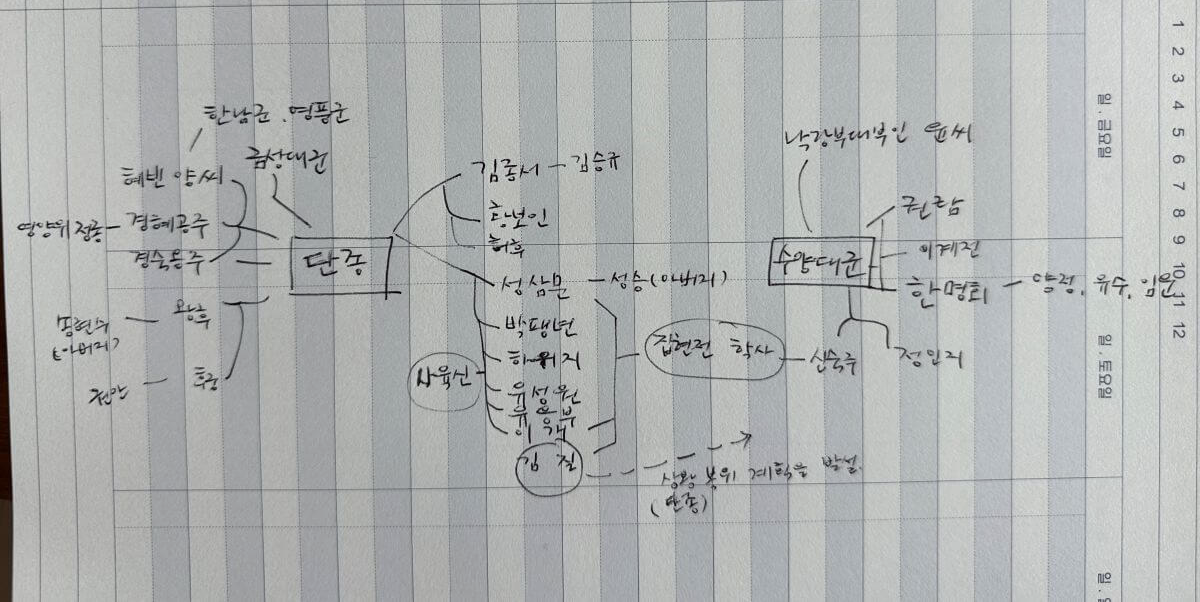 한남군, 영풍군
금성대군
혜빈 양씨
영양위 정종 - 경혜공주
경숙옹주
단종
왕후
송현수
(아버지)
후궁
김종서 - 김승규
황보인
허후
성삼문 - 성승(아버지)
박팽년
하위지
유성원
유응부
이개
김질
사육신
집현전 학사
상왕 복위 계획을 발설.
(단종)
낙랑부대부인 윤씨
수양대군
권람
이계전
한명회 - 양정, 유수, 임운
신숙주
정인지
일. 금요일
일. 토요일
1
2
3
4
5
6
7
8
9
10
11
12